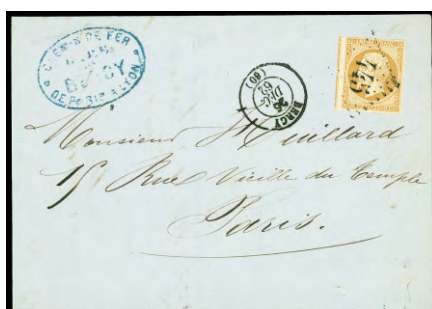 CHEMIN DE FER
BERCY
DE PARIS A LYON
BERCY
26
DEC
62
(60)
Monsieur Huillard
15 Rue Vieille du Temple
Paris.